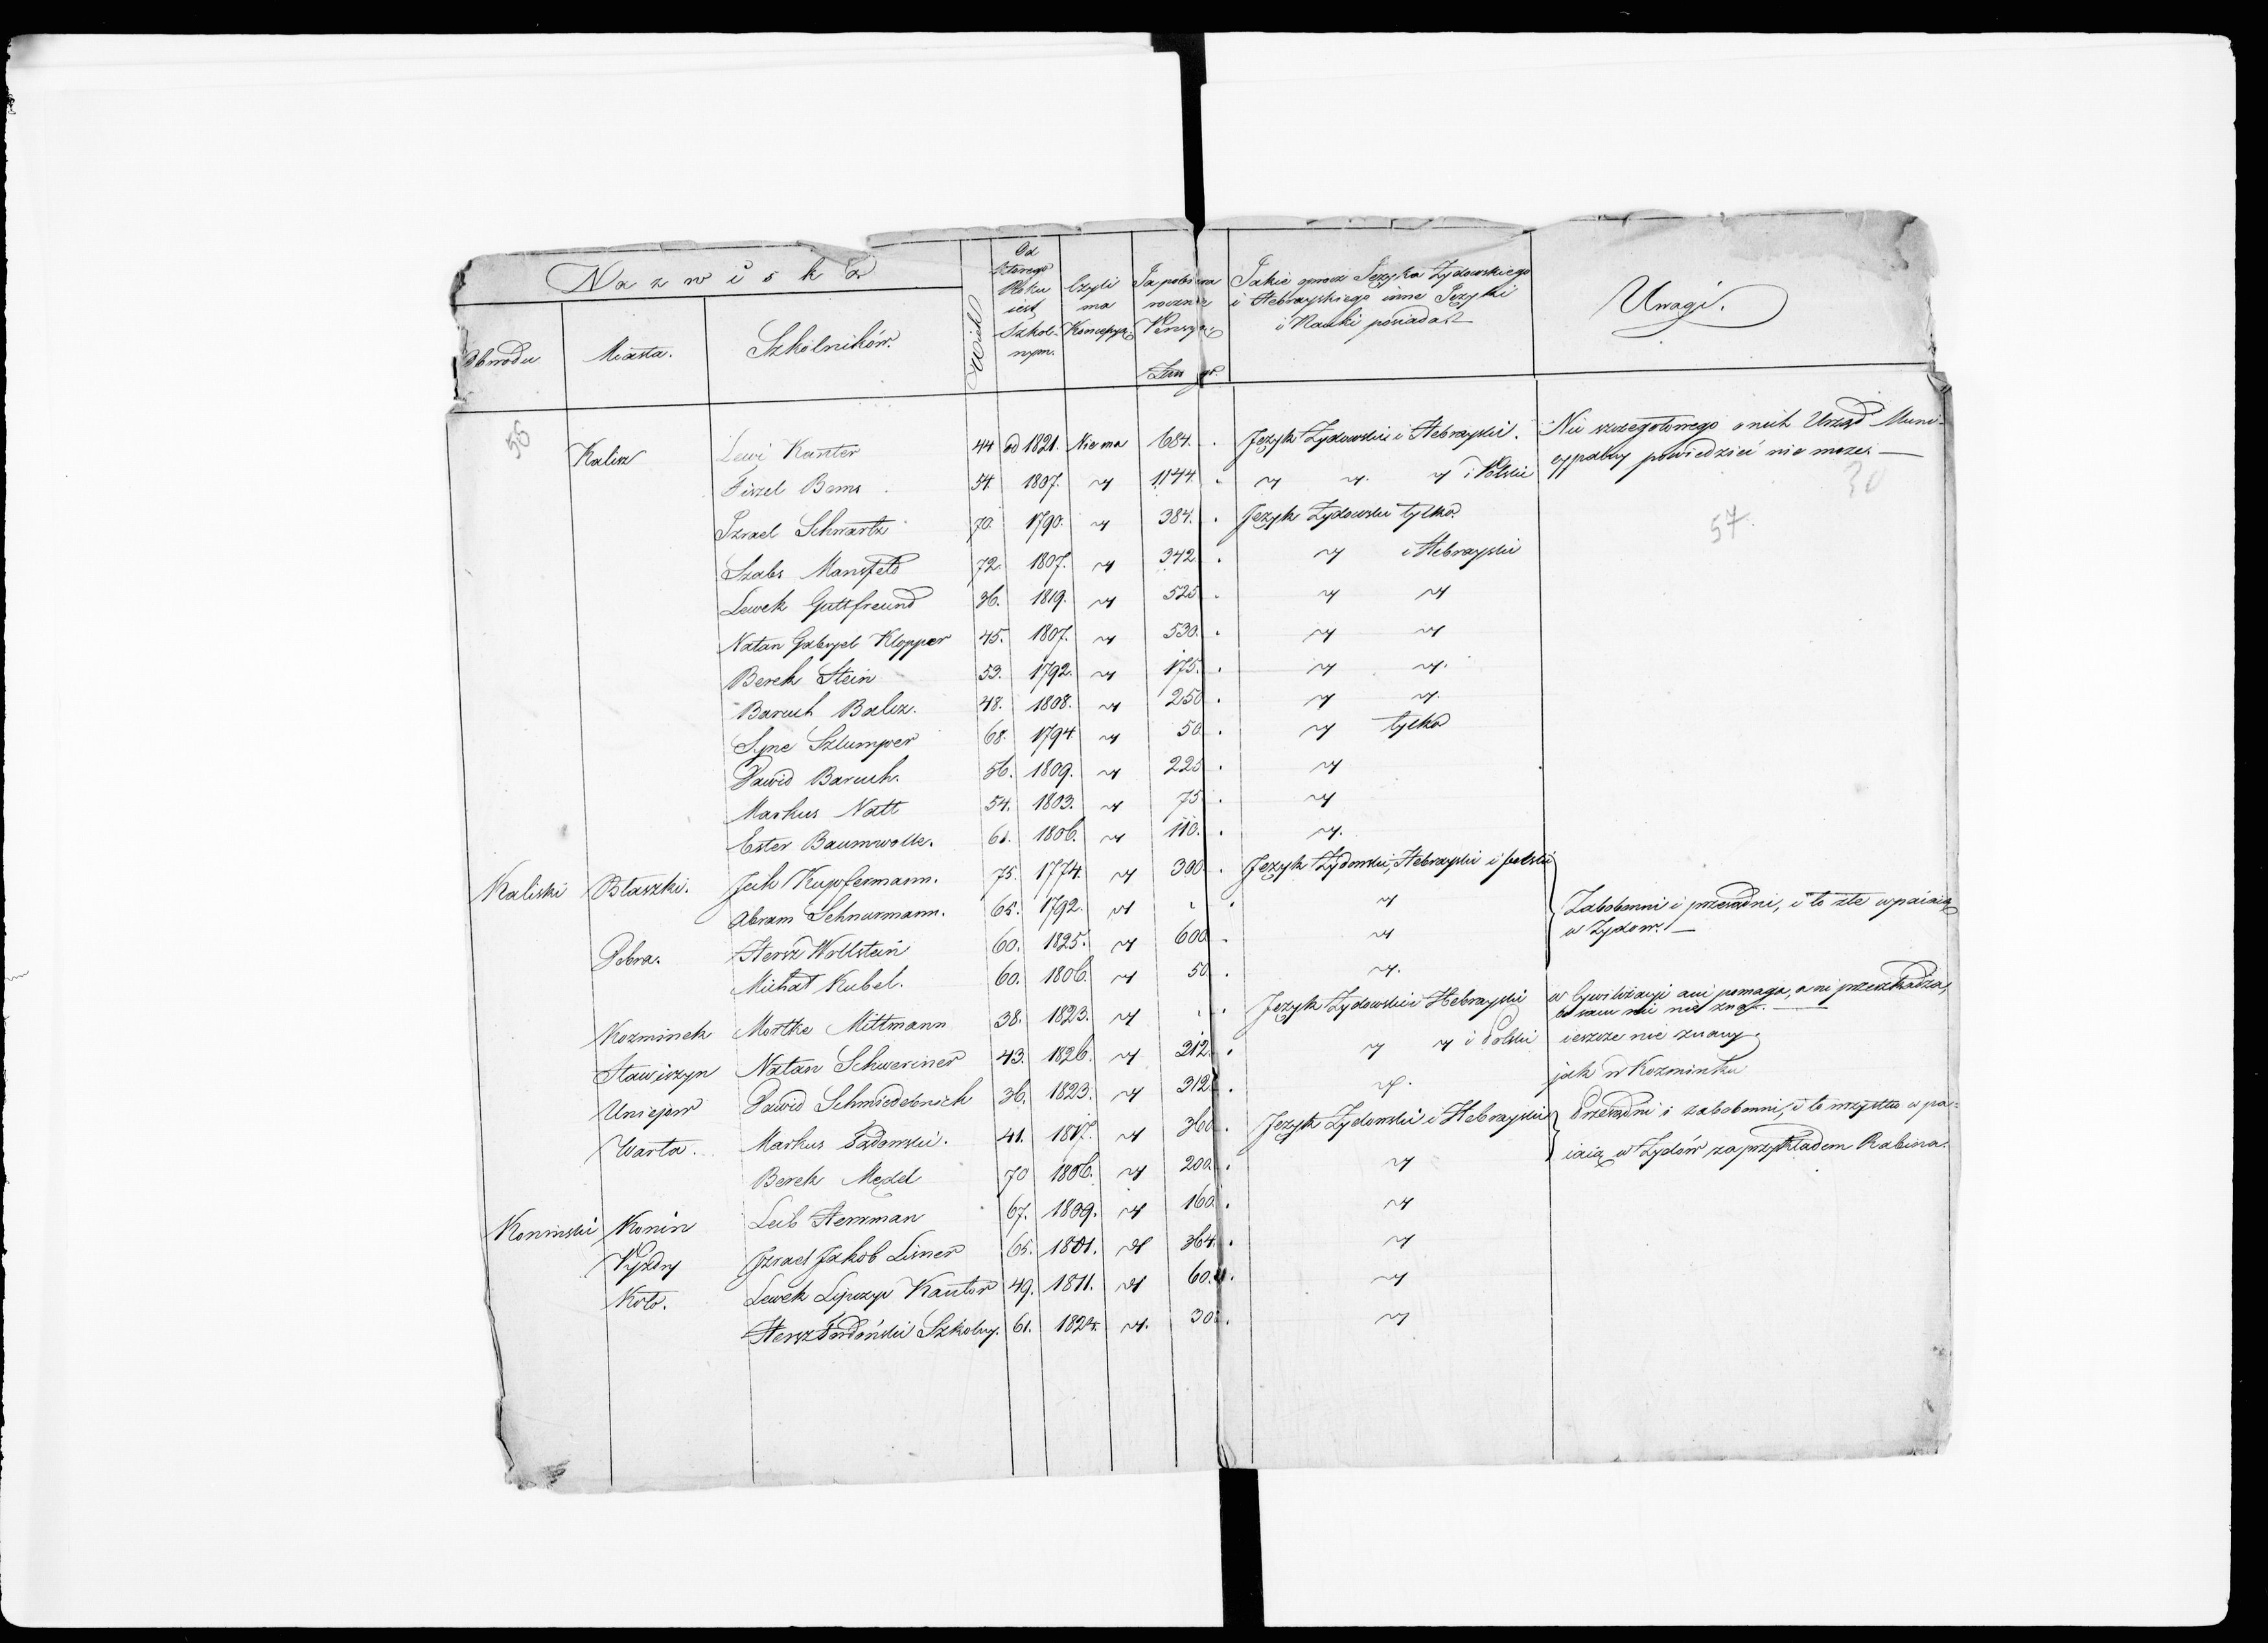 Nazwiska
Obwodu Miasta. Szkólników. Wiek Od którego Roku iest Szkolnym. Czyli ma Koncepyą Ja pobiera rocznie Pensya. Złr gr. Jakie oprocz Języka Zydowskiego i Hebrayskiego inne Języki i Nauki posiada? Uwagi.
56
Kalisz Lewi Kanter 44 od 1821. Niema 684. . Język Zydowskie i Hebrayski. Nic szczegołowego o nich Urząd Muni-
cypalny powiedzieć nie może. —
Fiszel Bams 54. 1807. " 1144. . " " " i Polski
30
Izrael Schwartz 70. 1790. " 384. . Język Zydowski tylko.
57.
Szabs Mansfeld 72. 1807. " 342 . " i Hebrayski
Lewek Guttfreund 36. 1819. " 525 . " "
Natan Gabryel Klopper 45. 1807. " 530. . " "
Berek Stein 53. 1792. " 175. . " ".
Baruch Balcz. 48. 1808. " 250 . " ".
Syne Szlumper 68. 1794 " 50. . " tylko
Dawid Baruch. 56. 1809. " 225 . "
Markus Natt 54. 1803. " 75 . "
Ester Baumwolle. 61. 1806. " 110. . ".
Kaliski Błaszki. Jeck Kupfermann. 75. 1774. " 300. . Język Żydowski, Hebrayski i polski
Abram Schnurmann. 65. 1792. " . . " Zabobonni i przesądni, i to złe wpaiaią
w Zydow. —
Dobra. Hersz Wollstein 60. 1825. " 600 . "
Michał Kubel. 60. 1806. " 50 . ".
Kozminek Mortke Mittmann 38. 1823. " . . Język Zydowski i Hebrayski w Cywilizacyi ani pomaga, ani przeszkadza,
bo sam nic nie zna. —
Stawiszyn Natan Schweriner 43. 1826. " 312. . " " i Polski ieszcze nie znany.
Uniejew Dawid Schmiedebrick 36. 1823. " 312 . ". jak w Kozminku
Warta. Markus Sądowski. 41. 1817. " 360 . Język Zydowski i Hebrayski Przesądni i zabobonni, i to wszystko wpa-
iaią w Zydów za przykładem Rabina.
Berek Mędel 70 1806. " 200. . "
Koninski Konin Leib Herrman 67. 1809. " 160 . "
Pyzdry Izrael Jakob Lisner 65. 1801. " 364. . "
Koło. Lewek Lipszyc Kantor 49. 1811. " 60. . "
Hersz Szkolny. 61. 1824. ". 30 . "